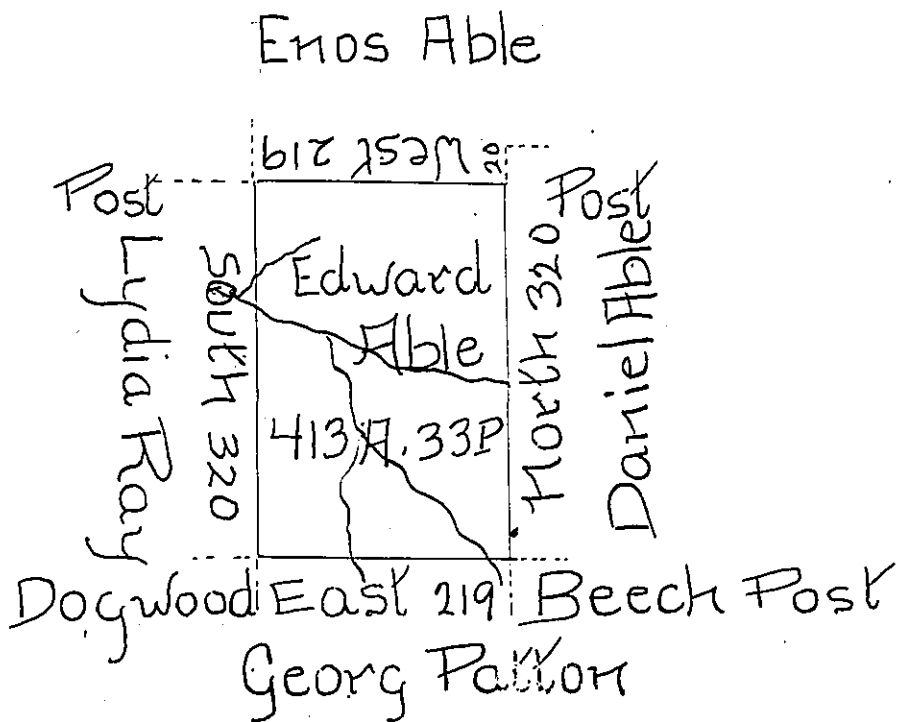 Enos Able
West 219
20
Post
Post
Lydia Ray
South 320
Edward
Able
413 A. 33P
North 320
Daniel Able
Dogwood East 219 Beech Post
Georg Patton